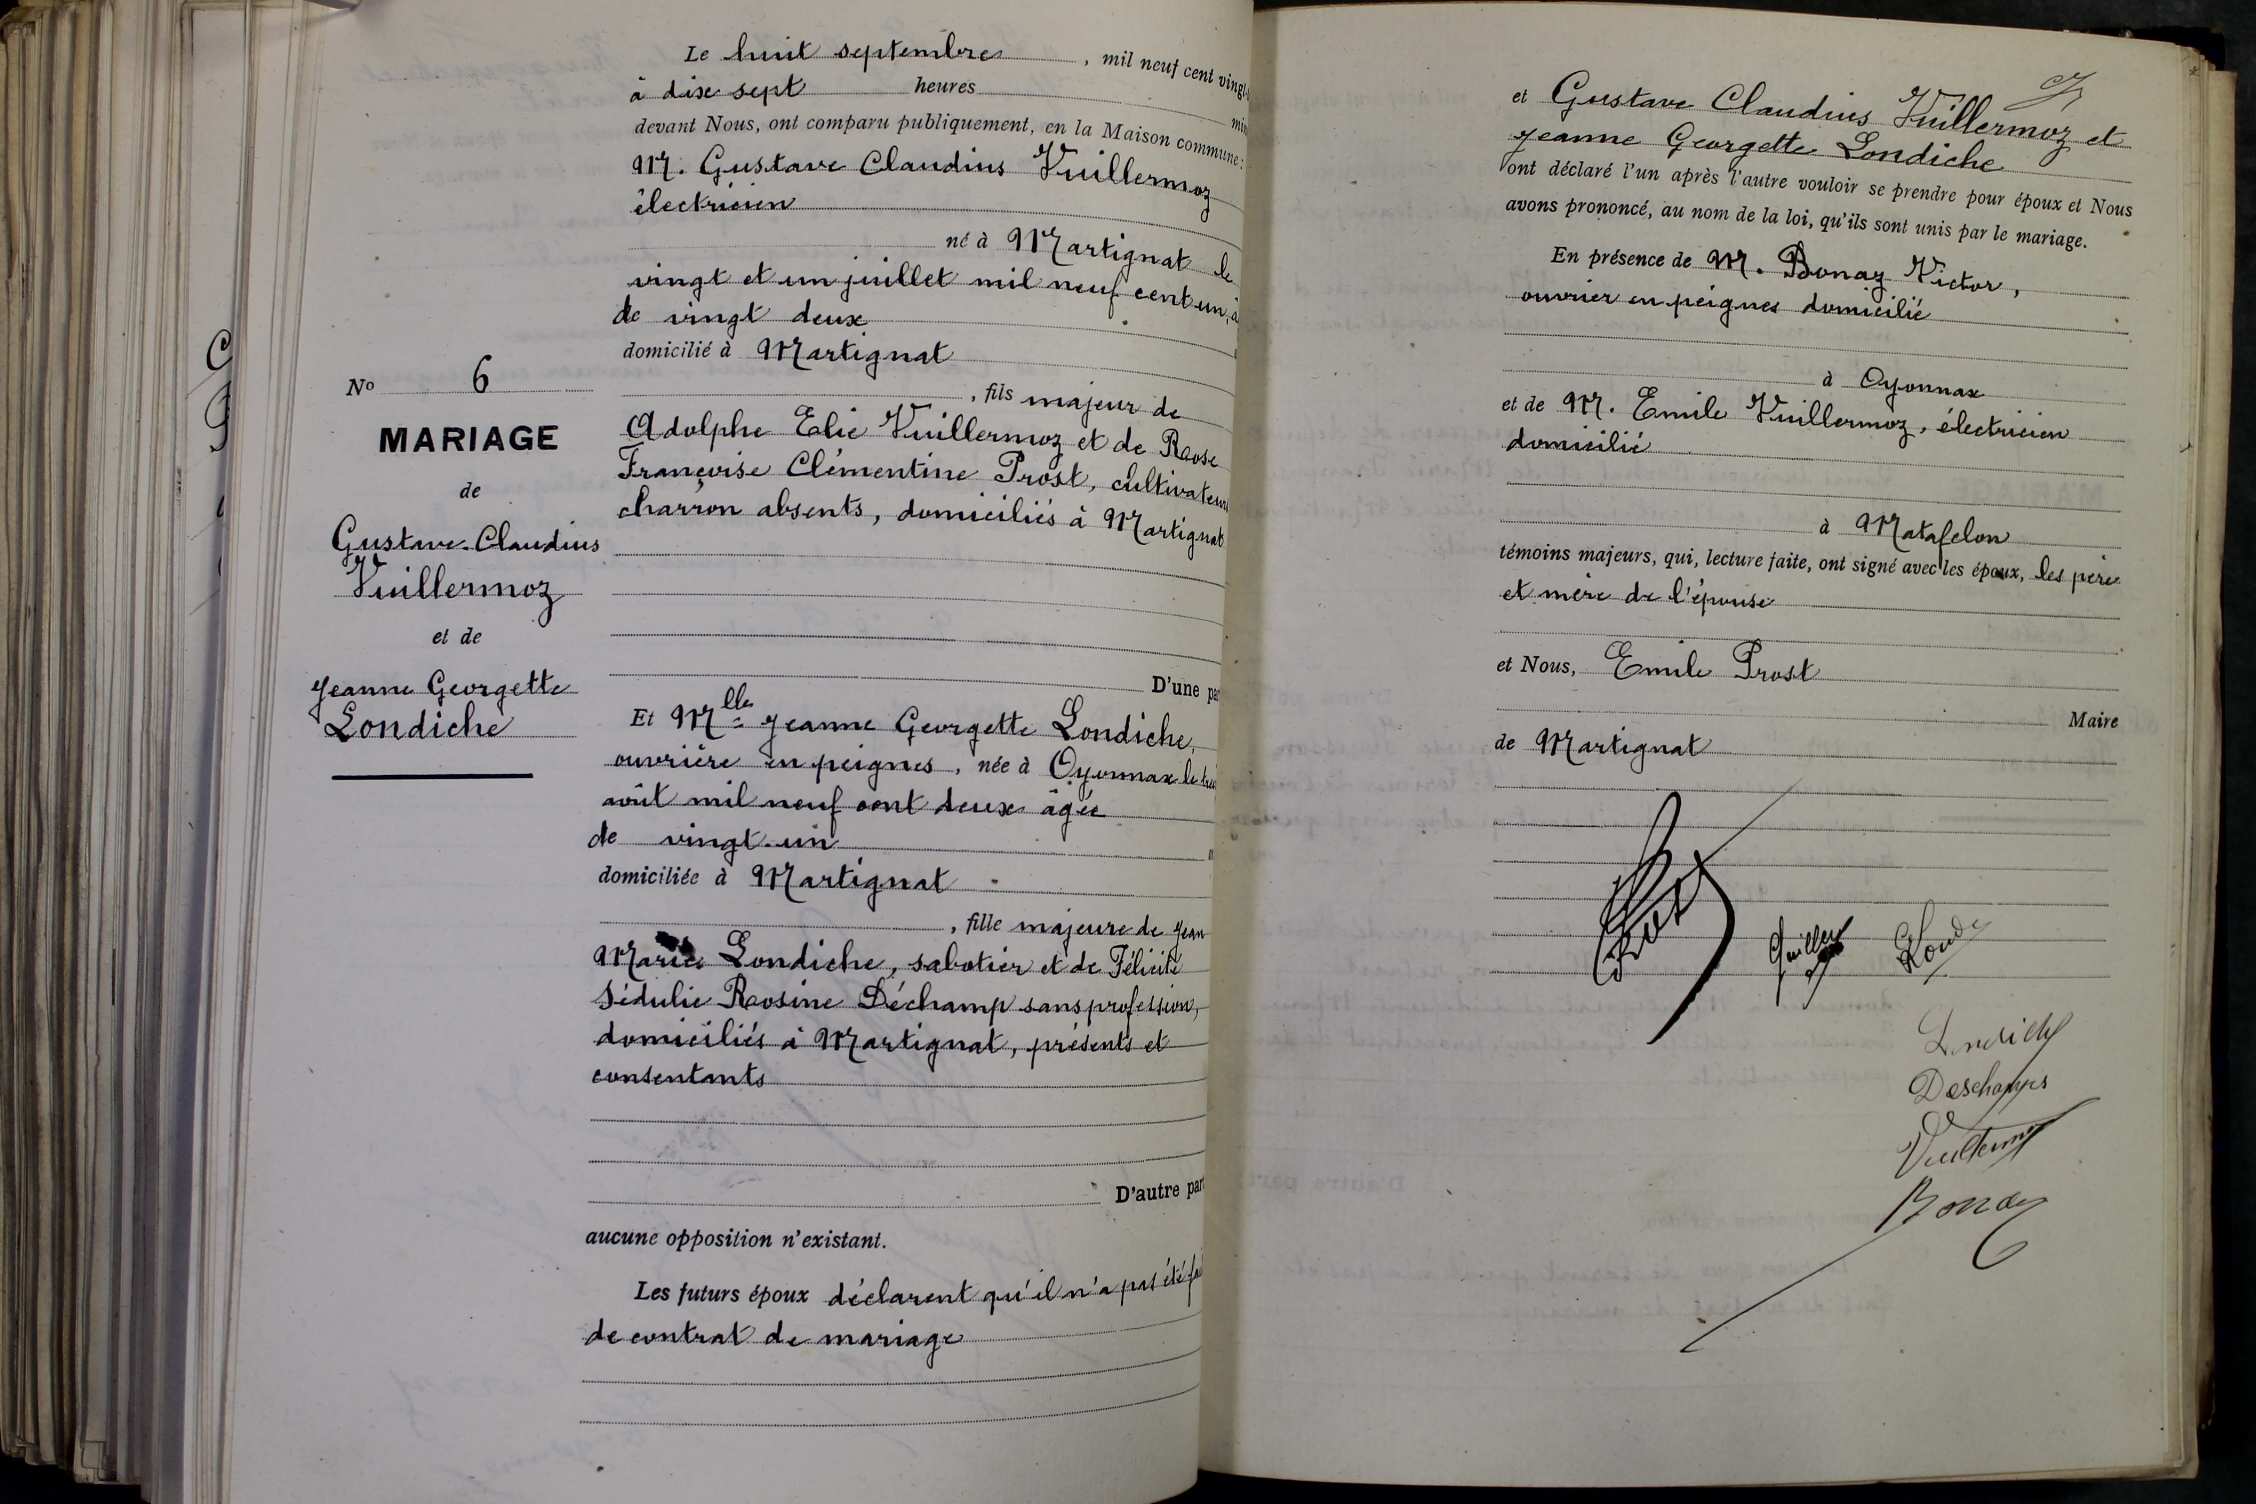 Le huit septembre, mil neuf cent vingt
à dix sept heures min
devant Nous, ont comparu publiquement, en la Maison commune:
M. Gustave Claudius Vuillermoz
électricien
né à Martignat le
vingt et un juillet mil neuf cent un, à
de vingt deux
domicilié à Martignat
, fils majeur de
Adolphe Elie Vuillermoz et de Rose
Françoise Clémentine Prost, cultivateurs
charron absents, domiciliés à Martignat
D'une par
No 6
MARIAGE
de
Gustave-Claudius
Vuillermoz
et de
Jeanne Georgette
Londiche
Et Mlle Jeanne Georgette Londiche,
ouvrière en peignes, née à Oyonnax le
août mil neuf cent deux âgée
de vingt-un
domiciliée à Martignat
, fille majeure de Jean
Marie Londiche, sabotier et de Félicité
Sédulie Rosine Déchamp sans profession,
domiciliés à Martignat, présents et
consentants
D'autre part
aucune opposition n'existant.
Les futurs époux déclarent qu'il n'a pas été fai
de contrat de mariage
et Gustave Claudius Vuillermoz et
Jeanne Georgette Londiche
ont déclaré l'un après l'autre vouloir se prendre pour époux et Nous
avons prononcé, au nom de la loi, qu'ils sont unis par le mariage.
En présence de M. Bonaz Victor,
ouvrier en peignes domicilié
à Oyonnax
et de M. Emile Vuillermoz, électricien
domicilié
à Matafelon
témoins majeurs, qui, lecture faite, ont signé avec les époux, les père
et mère de l'épouse
et Nous, Emile Prost
Maire
de Martignat
Prost
Londiche
Deschamps
Vuillermoz
Bonaz